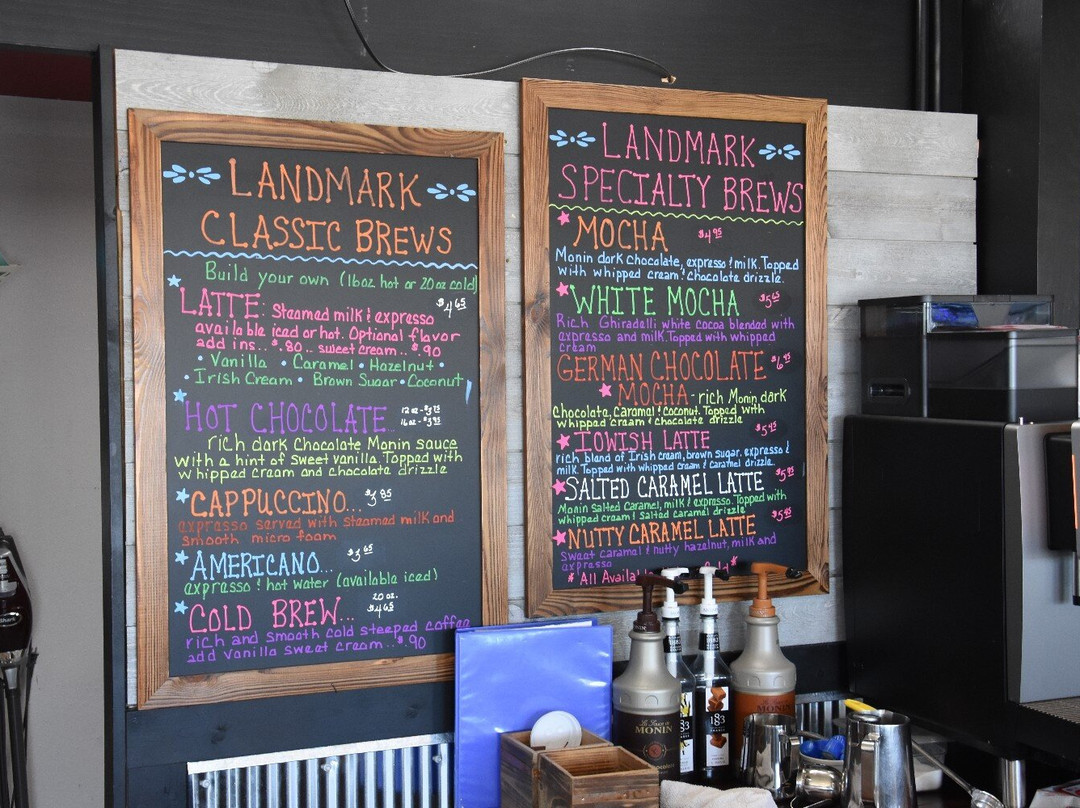 LANDMARK
CLASSIC BREWS
Build your own (16oz hot or 20oz cold)
LATTE: Steamed milk & expresso $4.65
available iced or hot. Optional flavor
add ins.. $.80.. sweet cream.. $.90
• Vanilla • Caramel • Hazelnut •
• Irish Cream • Brown Sugar • Coconut
HOT CHOCOLATE..
12 oz -
16 oz -
rich dark Chocolate Monin sauce
with a hint of sweet vanilla. Topped with
whipped cream and chocolate drizzle
CAPPUCCINO... $3.85
expresso served with steamed milk and
smooth micro foam
AMERICANO... $3.65
expresso & hot water (available iced)
20 oz.
COLD BREW... $4.65
rich and smooth cold steeped coffee
add vanilla sweet cream.. $.90
LANDMARK
SPECIALTY BREWS
MOCHA $4.95
Monin dark Chocolate, expresso & milk. Topped
with whipped cream & chocolate drizzle.
WHITE MOCHA $5.45
Rich Ghiradelli white cocoa blended with
expresso and milk. Topped with whipped
cream
GERMAN CHOCOLATE $6.45
MOCHA - rich Monin dark
Chocolate, Caramel & Coconut. Topped with
whipped cream & chocolate drizzle
IOWISH LATTE $5.45
rich blend of Irish cream, brown sugar, expresso &
milk. Topped with whipped cream & caramel drizzle.
SALTED CARAMEL LATTE $5.45
Monin Salted Caramel, milk & expresso. Topped with
whipped cream & Salted caramel drizzle
NUTTY CARAMEL LATTE $5.45
Sweet caramel & nutty hazelnut, milk and
expresso
* All
MONIN
183
183
MONIN
Shark